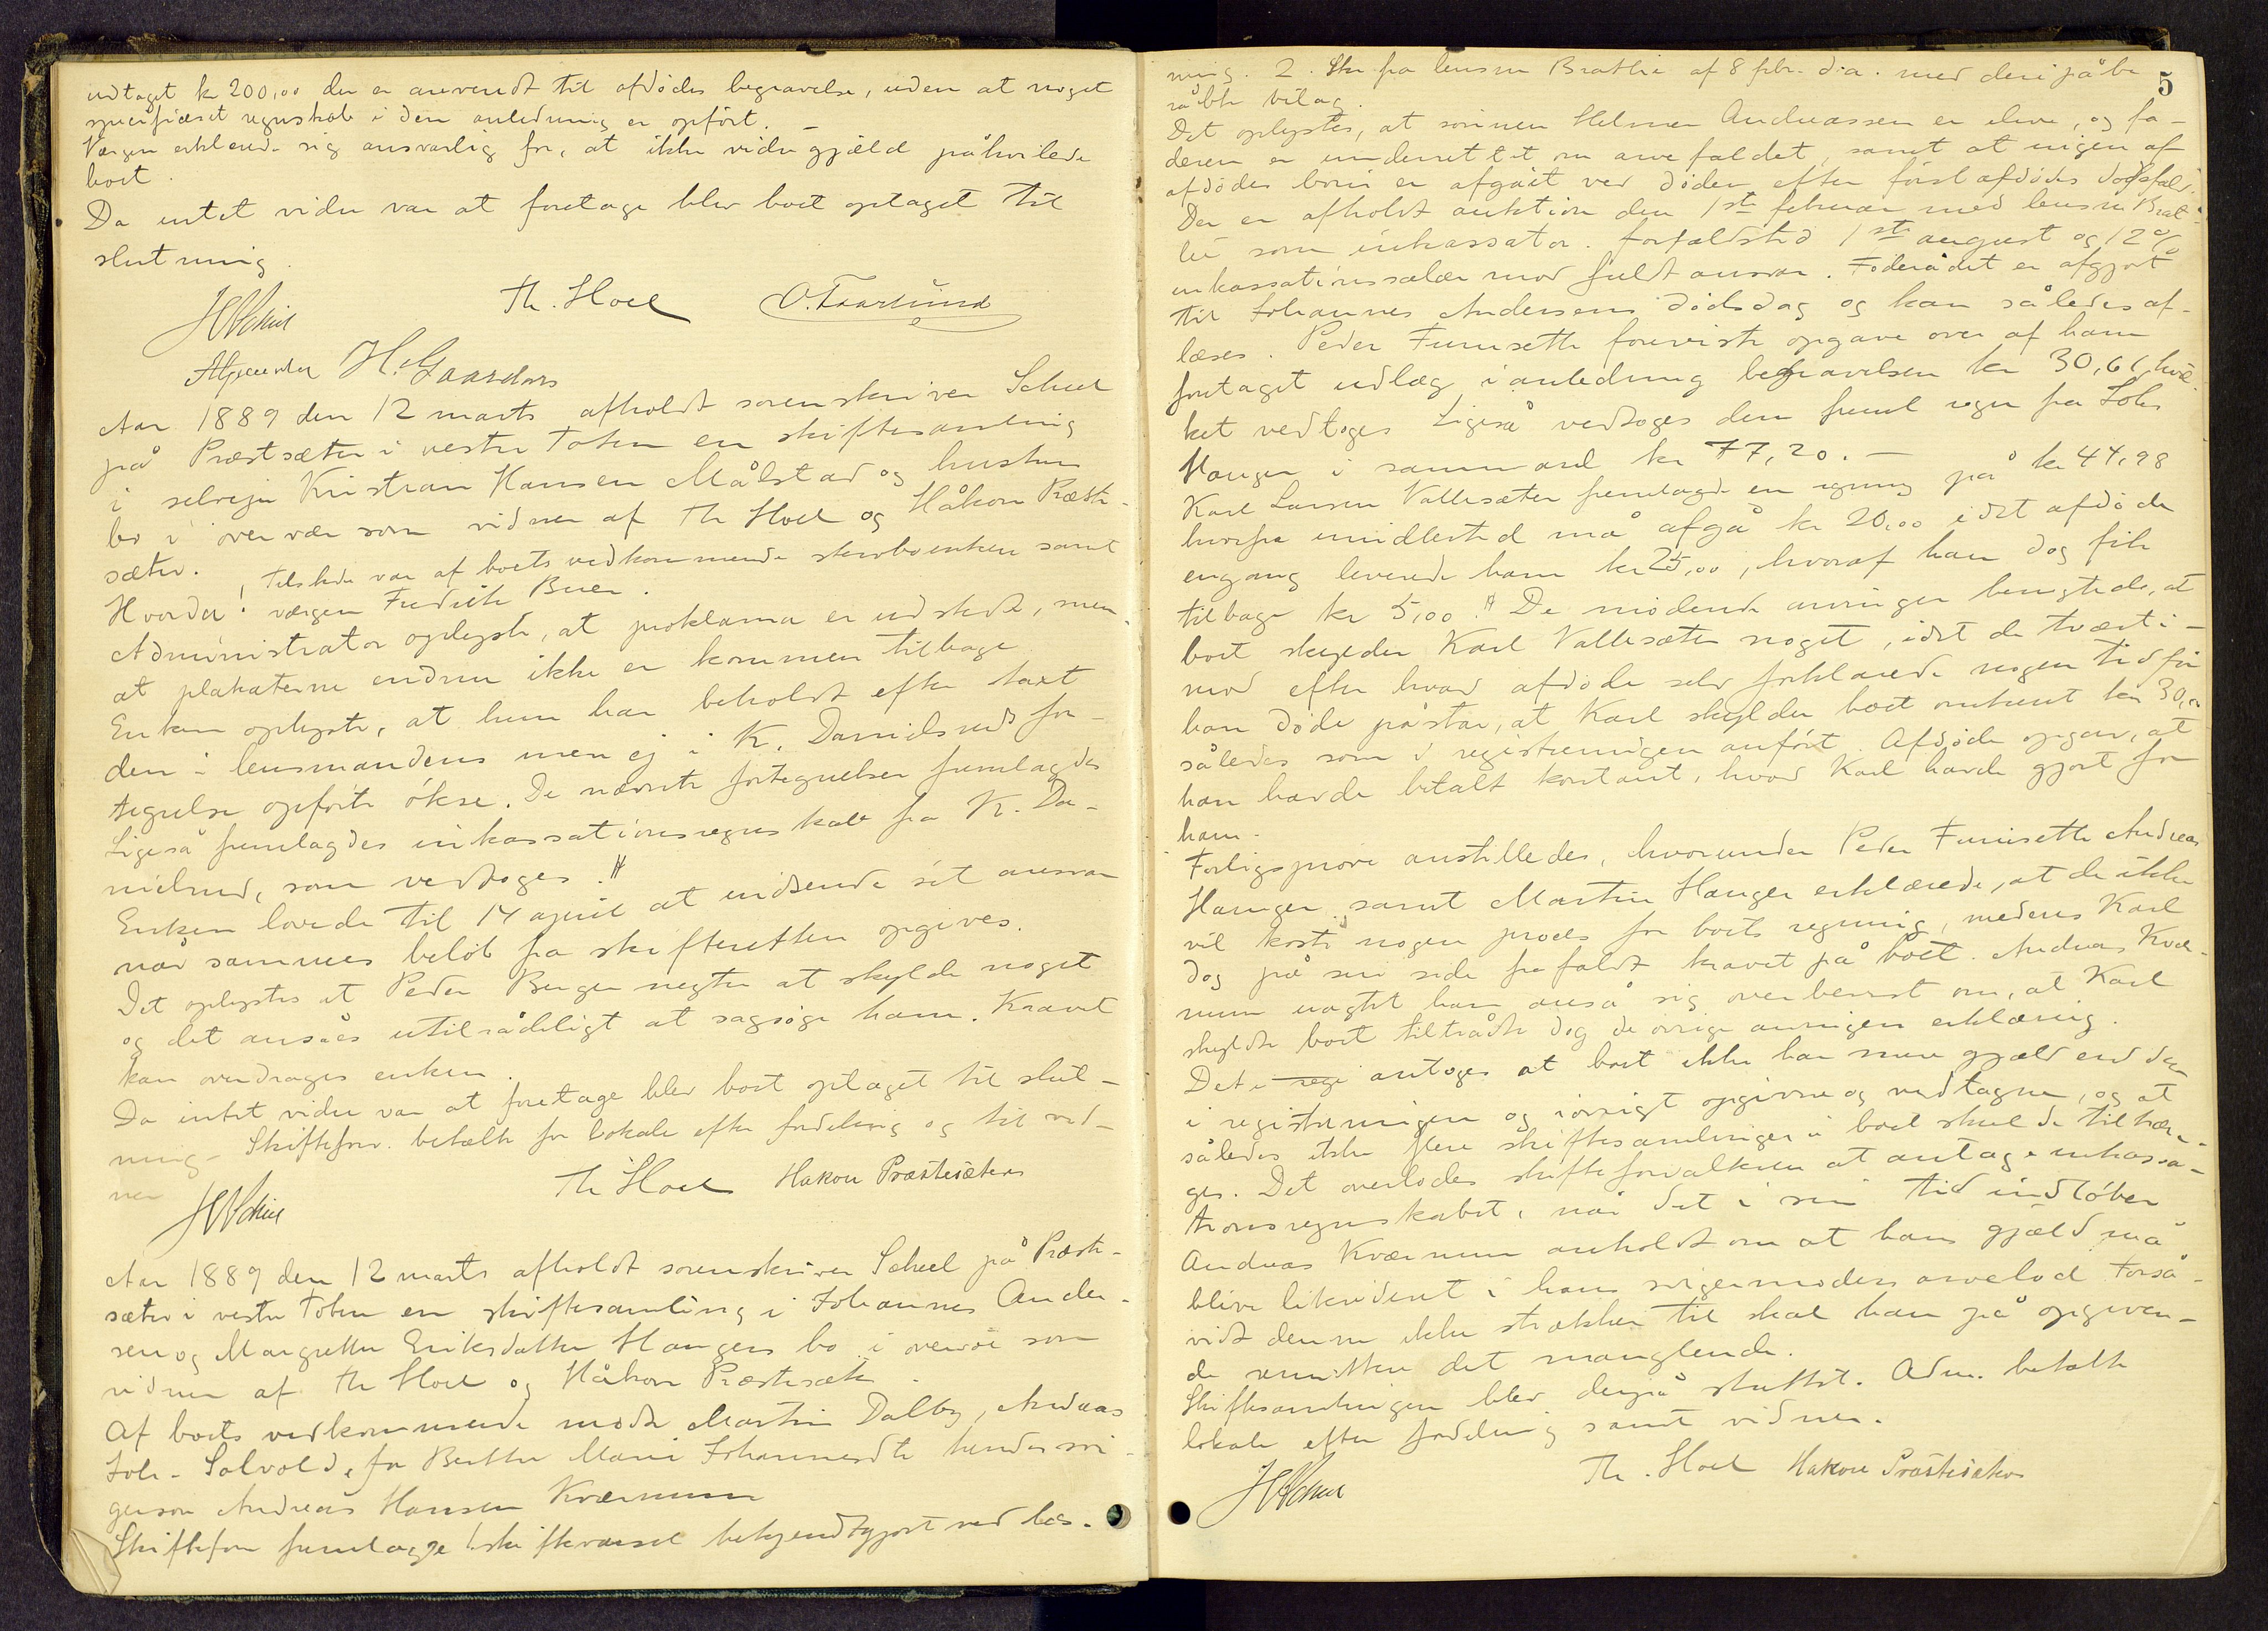 udtaget kr 200,00 der er anvendt til afdødes begravelse, uden at noget
specificeret regnskab i den anledning er opført.
Værgen erklærede sig ansvarlig for, at ikke videre gjæld påhvilede
boet.
Da intet videre var at foretage blev boet optaget til
slutning.
Th. Hoel O. Faarlund
H. Gaarder
Aar 1889 den 12 marts afholdt sorenskriver Scheel
på Præstsæter i vestre Toten en skiftesamling
i selveier Kristian Hansen Målstad og hustrus
bo i overvær som vidner af Th Hoel og Håkon Præst-
sæter.
Hvorda! Tilstede var af boets vedkommende skiebo enken samt
værgen Fredrik Buer.
Administrator oplyste, at proklama er udstedt, men
at plakaterne endnu ikke er kommen tilbage
Enken oplyste, at hun har beholdt efter taxt
den i lensmandens men ej i K. Danielsruds for-
tegnelse opførte økse. De nævnte fortegnelser fremlagdes
Ligeså fremlagdes inkassationsregnskab fra K. Da-
nielsrud, som vedtoges.
Enken lovede til 14 april at indsende sit ansvar
når sammes beløb fra skifteretten opgives.
Det oplystes at Peder Berger negter at skylde noget
og det ansåes utilrådeligt at sagsøge ham. Kravet
kan overdrages enken.
Da intet videre var at foretage blev boet optaget til slut-
ning - Skifteforv. betalte for lokale efter fordeling og til vid-
ner
Th Hoel Hakon Præstesæter
Aar 1889 den 12 marts afholdt sorenskriver Scheel på Præst-
sæter i vestre Toten en skiftesamling i Johannes Ander-
sen og Margrethe Eriksdatter Haugers bo i overvær som
vidner af Th Hoel og Håkon Præstesæter.
Af boets vedkommende mødte Martin Dalby, Andreas
Joh. Solvold, for Berthe Marie Johannesdtr hendes svi-
gerson Andreas Hansen Kværnum
Skifteforv fremlagde 1. skiftevarsel bekjendtgjort ved læs-
5
ning. 2. Skr fra lensm Brathe af 8 febr. d.a. med deri påbe
råbte bilag.
Det oplystes, at sønnen Helmer Andreassen er ilive, og fa-
deren er underrettet om arvefaldet, samt at ingen af
afdødes børn er afgået ved døden efter førstafdødes dødsfald.
Der er afholdt auktion den 1ste februar med lensm Brat-
lie som inkassator. Forfaldstid 1ste august og 12%
inkassationssalær mod fuldt ansvar. Føderådet er afgjort
til Johannes Andersens dødsdag og kan således af-
læses. Peder Furusette foreviste opgave over af ham
foretaget udlæg i anledning begravelsen kr 30,61, hvil-
ket vedtoges Ligeså vedtoges dem freml regn fra Johs
Hauger i sammend kr 77,20. -
Karl Larsen Vallesæter fremlagde en regning på kr 44,98
hvorfra imidlertid må afgå kr 20,00 idet afdøde
engang leverede ham kr 25,00, hvoraf han dog fik
tilbage kr 5,00. De mødende arvinger benegtede, at
boet skylder Karl Vallesæter noget, idet de tværti-
mod efter hvad afdøde selv forklarede nogen tid før
han døde påstår, at Karl skylder boet omtrent kr 30,00
således som i registreringen anført. Afdøde opgav, at
han havde betalt kontant, hvad Karl havde gjort for
ham.
Forligsprøve anstilledes, hvorunder Peder Furusette Andreas
Hauger samt Martin Hauger erklærede, at de ikke
vil koste nogen proces for boets regning, medens Karl
dog på sin side frafaldt kravet på boet. Andreas Kvær-
num uagtet han anså sig overbevist om, at Karl
skyldte boet tiltrådte dog de øvrige arvingers erklæring.
Det antoges at boet ikke har mere gjæld end den
i registreringen og iøvrigt opgivne og vedtagne, og at
således ikke flere skiftesamlinger i boet skulde tiltræn-
ges. Det overlodes skifteforvalteren at antage inkassa-
tionsregnskabet, når det i sin tid indløber
Andreas Kværnum anholdt om at hans gjæld må
blive likvideret i hans svigermoders arvelod Forså-
vidt denne ikke strækker til skal han på opgiven-
de remittere det manglende.
Skiftesamlingen blev derpå sluttet. Adm. betalte
lokale efter fordeling samt vidner.
Th. Hoel Hakon Præstesæter